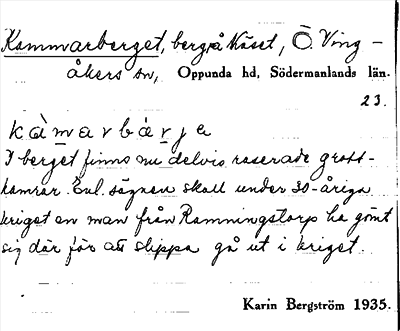 Kammarberget, berg, å Näset, Ö. Ving-
åkers sn, Oppunda hd, Södermanlands län.
23.
kàmarbàrje
I berget finns nu delvis raserade grott-
kamrar. Enl. sägnen skall under 30-åriga
kriget en man från Ramningstorp ha gömt
sig där för att slippa gå ut i kriget.
Karin Bergström 1935.